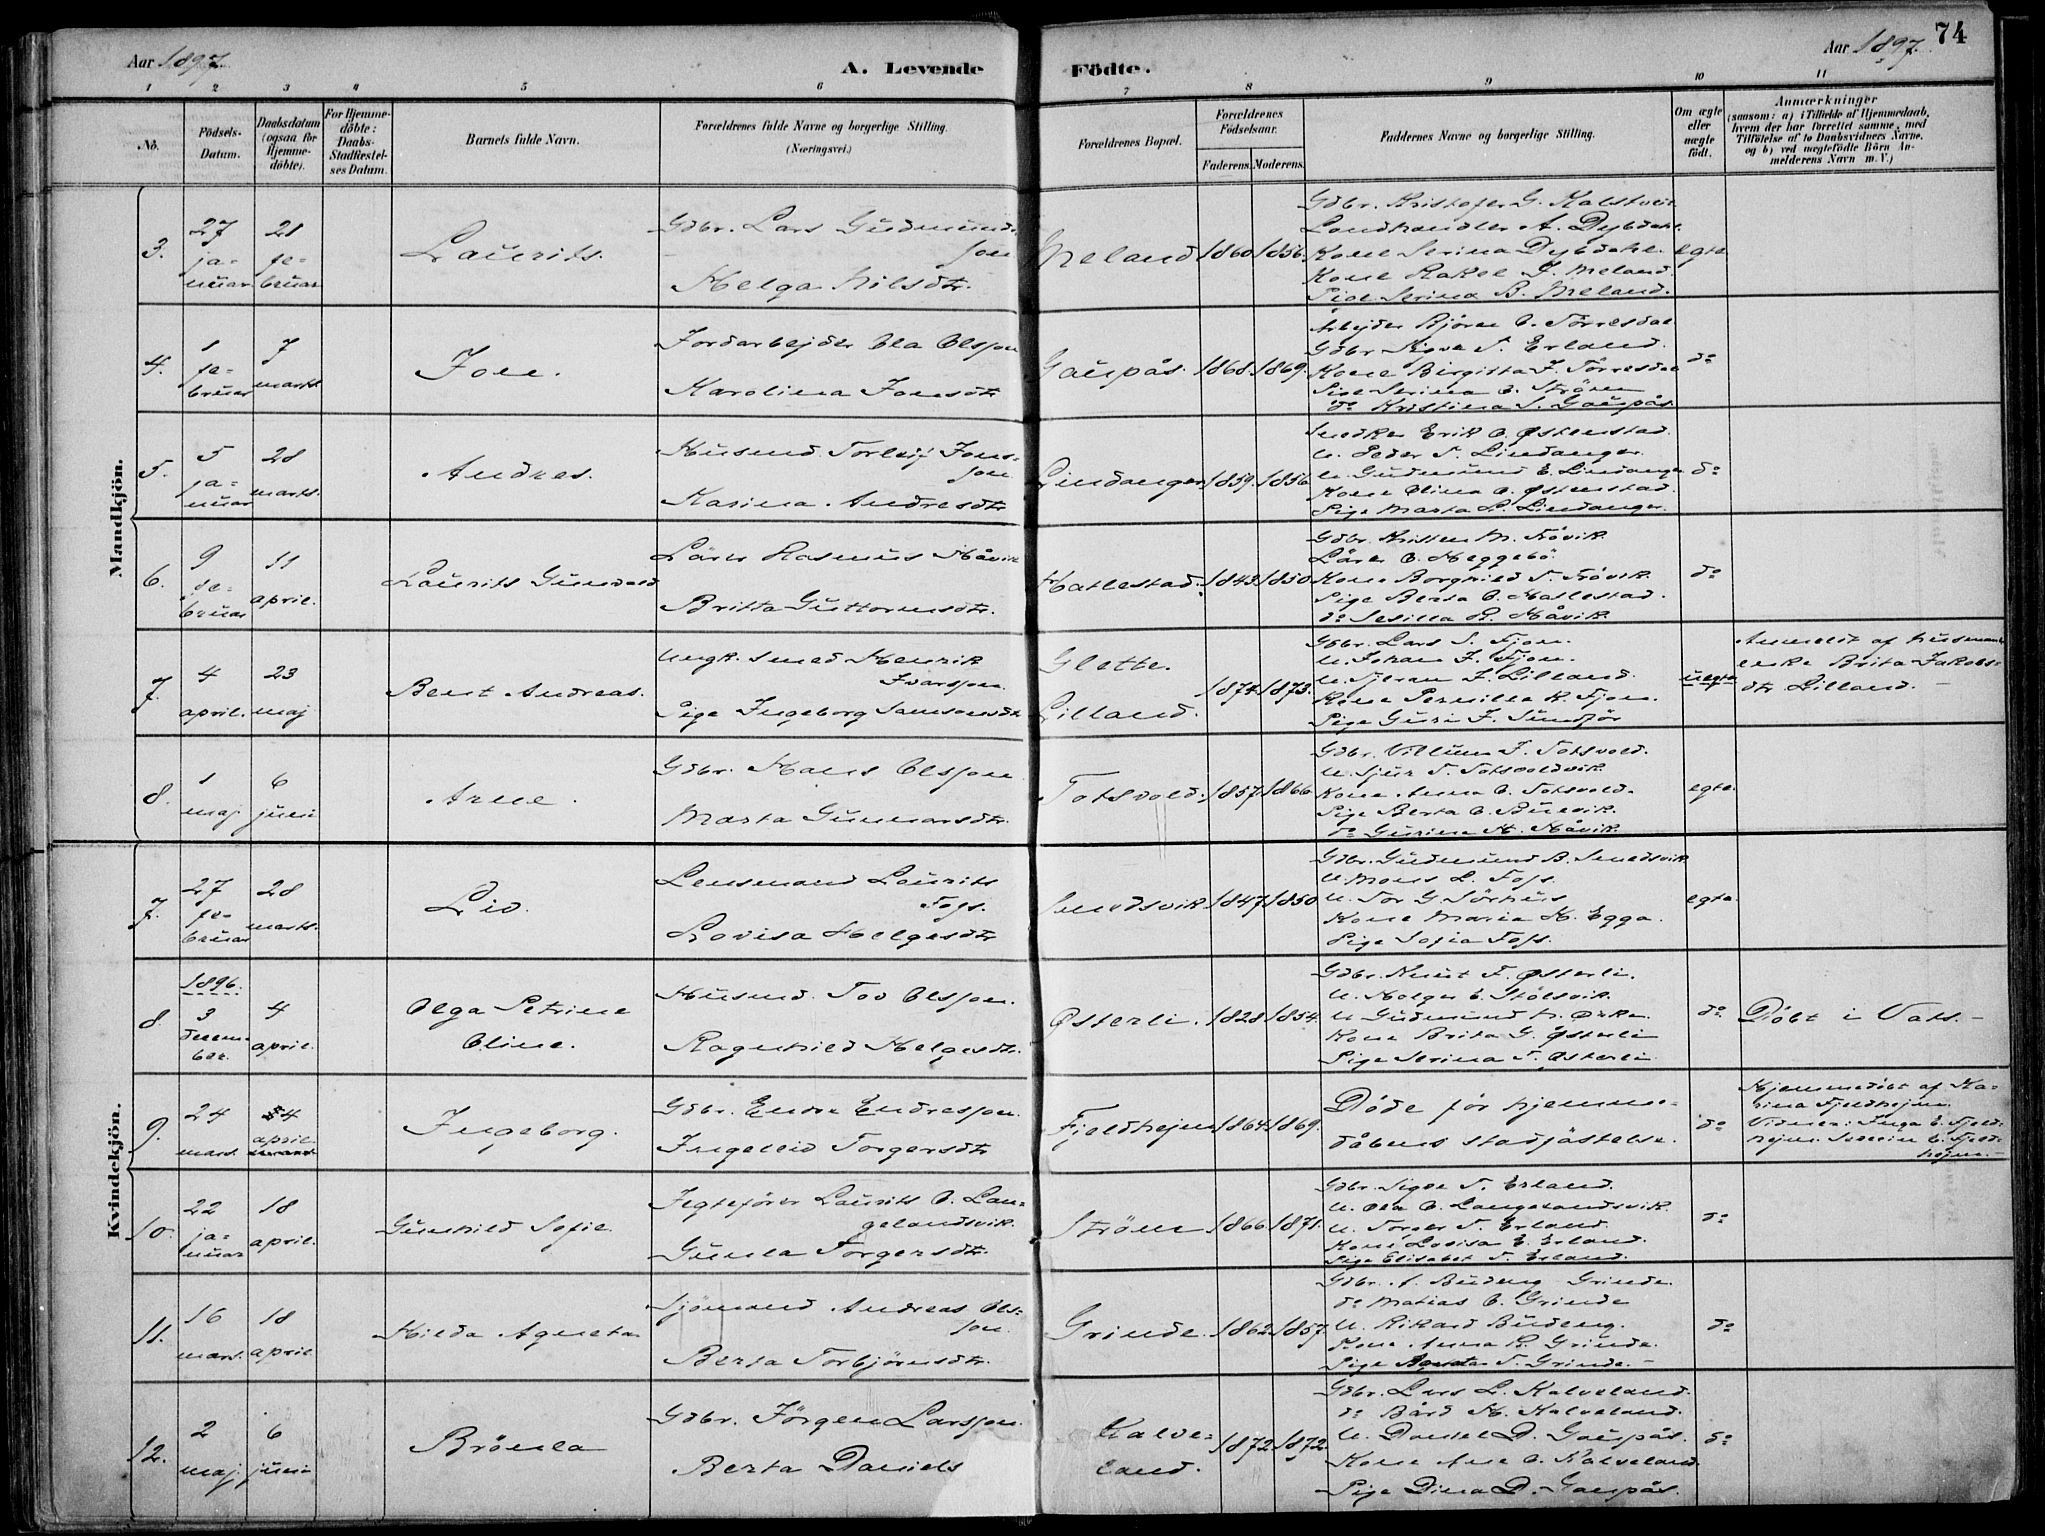 74
Aar 1897.
A. Levende Födte.
Aar 1897.
1 2 3 4 5 6 7 8 9 10 11
No.
Födsels-Datum.
Daabsdatum (ogsaa for Hjemme-döbte).
For Hjemme-döbte: Daabs-Stadfæstel-ses Datum.
Barnets fulde Navn.
Forældrenes fulde Navne og borgerlige Stilling.
(Næringsvei.)
Forældrenes Bopæl.
Forældrenes Födselsaar.
Faderens. Moderens.
Faddernes Navne og borgerlige Stilling.
Om ægte eller uægte födt.
Anmærkninger
(saasom: a) i Tilfælde af Hjemmedaab,
hvem der har forrettet samme, med
Tilföielse af to Daabsvidners Navne.
og b) ved uægtefödte Börn An-
melderens Navn m. V.)
Mandkjön.
3.
27 ja-
nuar
21 fe-
bruar
Laurits.
Gdbr. Lars Gudmund-
son
Helga Nilsdtr.
Meland
1860
1856.
Gdbr. Kristofer G. Kalstveit
Landhandler A. Dybdahl.
Kone Serina Dybdahl.
Kone Rakel J. Meland.
Pige Serina B. Meland.
egte
4.
1 fe-
bruar
7 marts
Jone.
Jordarbejder Ola Olsson
Karolina Jonsdtr
Gaupås.
1868.
1869.
Arbejder Björne O. Törresdal
Gdbr Sigve T. Erland.
Kone Birgitta J. Törresdal
Pige Serina O. Ström
do Kristina S. Gaupås
do
5.
5 ja-
nuar
28 marts.
Andres.
Husmd Torleif Jons-
son
Karina Andresdtr
Lindanger
1859.
1856
Snedker Erik O. Østenstad.
U. Peder T. Lindanger.
U. Gudmund E. Lindanger
Kone Olina O. Østenstad.
Pige Marta L. Lindanger.
do
6.
9 fe-
bruar
11 april.
Laurits Gunvald
Lärer Rasmus Håvik
Britta Guttormsdtr.
Hatlestad.
1843.
1850
Gdbr. Kristen M. Trövik.
Lärer O. Heggebö
Kone Borghild T. Trövik.
Pige Berta O. Hatlestad.
do Sesilia R. Håvik.
do
7.
4 april.
23 maj
Bent Andreas.
Ungk. Smed Henrik
Ivarsson.
Pige Ingeborg Samsonsdtr
Glette.
Lilland.
1874.
1873.
Gdbr. Lars S. Fjon.
U. Johan J. Fjon.
U. J. Lilland.
Kone Pernilla K. Fjon.
Pige Guri J. Sundför
uegte
Anmeldt af husmands-
enke Brita Jakobs-
dtr Lilland.
8.
1 maj.
6 juni
Arne.
Gdbr. Hans Olsson
Marta Gunnarsdtr.
Totsvold.
1857.
1866.
Gdbr. Villum J. Totsvold.
U. Sjur T. Totsvoldvik.
Kone Anna O. Totsvold.
Pige Berta O. Buevik.
do Gurina H. Håvik.
egte.
Kvindekjön.
7.
27 fe-
bruar
28 marts.
Liv.
Lensmand Laurits
Foss.
Lovisa Helgesdtr
Smedsvik
1847.
1850
Gdbr. Gudmund B. Smedsvik
U. Mons L. Foss.
U. Tor G Sörhus
Kone Maria H. Egga.
Pige Sofia Foss.
egte.
8.
1896.
3 decem-
ber.
4 april.
Olga Petrine
Oline.
Husmd. Tov Olsson.
Ragnhild Helgesdtr.
Østerli.
1828
1854.
Gdbr. Knut F. Østerli.
U. Holger E. Stölsvik.
U Gudmund N. Ørke.
Kone Brita G. Østerli
Pige Serina T. Østerli
do
Döbt i Vats.
9.
24 mars.
4 april.
Ingeborg.
Gdbr. Endre Endresson.
Ingeleid Torgersdtr
Fjeldhejm
1864
1869.
Döde för hjemme-
dåbens stadfästelse.
do
Hjemmedöbt af Ka-
rina Fjeldhejm.
Vidner: Inga E. Fjeld-
hejm. Severin E. Fjeld-
hejm.
10.
22 ja-
nuar
18 april.
Gunhild Sofie.
Jegtefører Laurits O. Lan-
gelandsvik.
Gunla Torgersdtr.
Ström
1866
1871.
Gdbr. Sigve T. Erland.
U. Ola O. Langelandsvik
U. Torger T. Erland.
Kone Lovisa E. Erland.
Pige Elisabet T. Erland.
do
11.
16 mars.
18 april
Hilda Agneta
Sjömand Andreas Ols-
son.
Berta Torbjörnsdtr.
Grinde.
1862
1857.
Gdbr. A. Budeng Grinde.
do Matias O. Grinde
U. Rikard Budeng.
Kone Anna R. Grinde.
Pige Agneta T. Grinde.
do
12.
2 maj.
6 juni
Brönla
Gdbr. Jörgen Larsson.
Berta Daniels
Kalve-
land.
1872
1872.
Gdbr. Lars L. Kalveland.
do Bård H. Kalveland.
U. Daniel D. Gaupås.
Kone Ane O. Kalveland
Pige Dina D. Gaupås.
do